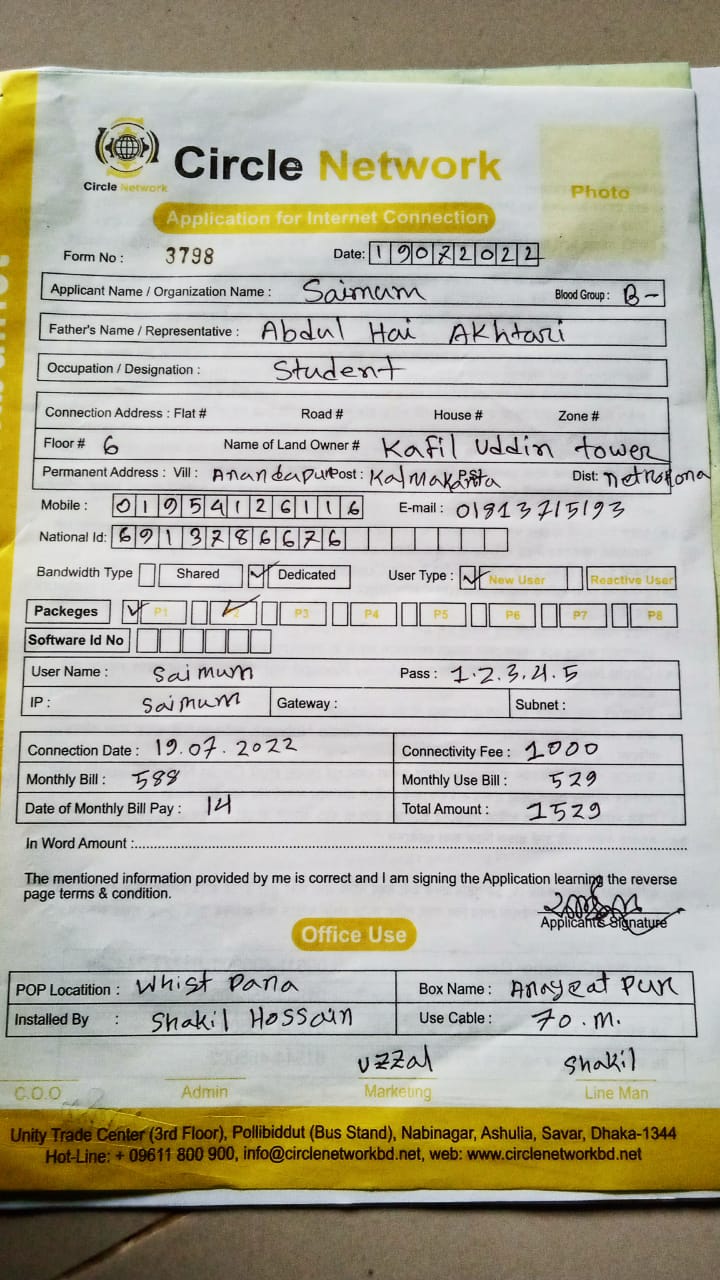 Circle Network
Circle Network
Photo
Application for Internet Connection
Form No : 3798 Date: 19072022
Applicant Name / Organization Name : Saimum Blood Group : B-
Father's Name / Representative : Abdul Hai Akhtari
Occupation / Designation : Student
Connection Address : Flat # Road # House # Zone #
Floor # 6 Name of Land Owner # Kafil Uddin tower
Permanent Address : Vill : Anandapur Post : Kalmakanta P.S: Dist: netrokona
Mobile : 01954126116 E-mail : 01813715193
National Id: 6913786676
Bandwidth Type Shared ✓ Dedicated User Type : ✓ New User Reactive User
Packeges ✓ P1 ✓ P2 P3 P4 P5 P6 P7 P8
Software Id No
User Name : Saimum Pass : 1.2.3.4.5
IP : Saimum Gateway : Subnet :
Connection Date : 19.07.2022 Connectivity Fee : 1000
Monthly Bill : 588 Monthly Use Bill : 529
Date of Monthly Bill Pay : 14 Total Amount : 1529
In Word Amount :
The mentioned information provided by me is correct and I am signing the Application learning the reverse
page terms & condition.
Applicant's Signature
Office Use
POP Locatition : Whist Para Box Name : Anayeat Pur
Installed By : Shakil Hossain Use Cable : 70.m.
Uzzal Shakil
C.O.O Admin Marketing Line Man
Unity Trade Center (3rd Floor), Pollibiddut (Bus Stand), Nabinagar, Ashulia, Savar, Dhaka-1344
Hot-Line: + 09611 800 900, info@circlenetworkbd.net, web: www.circlenetworkbd.net